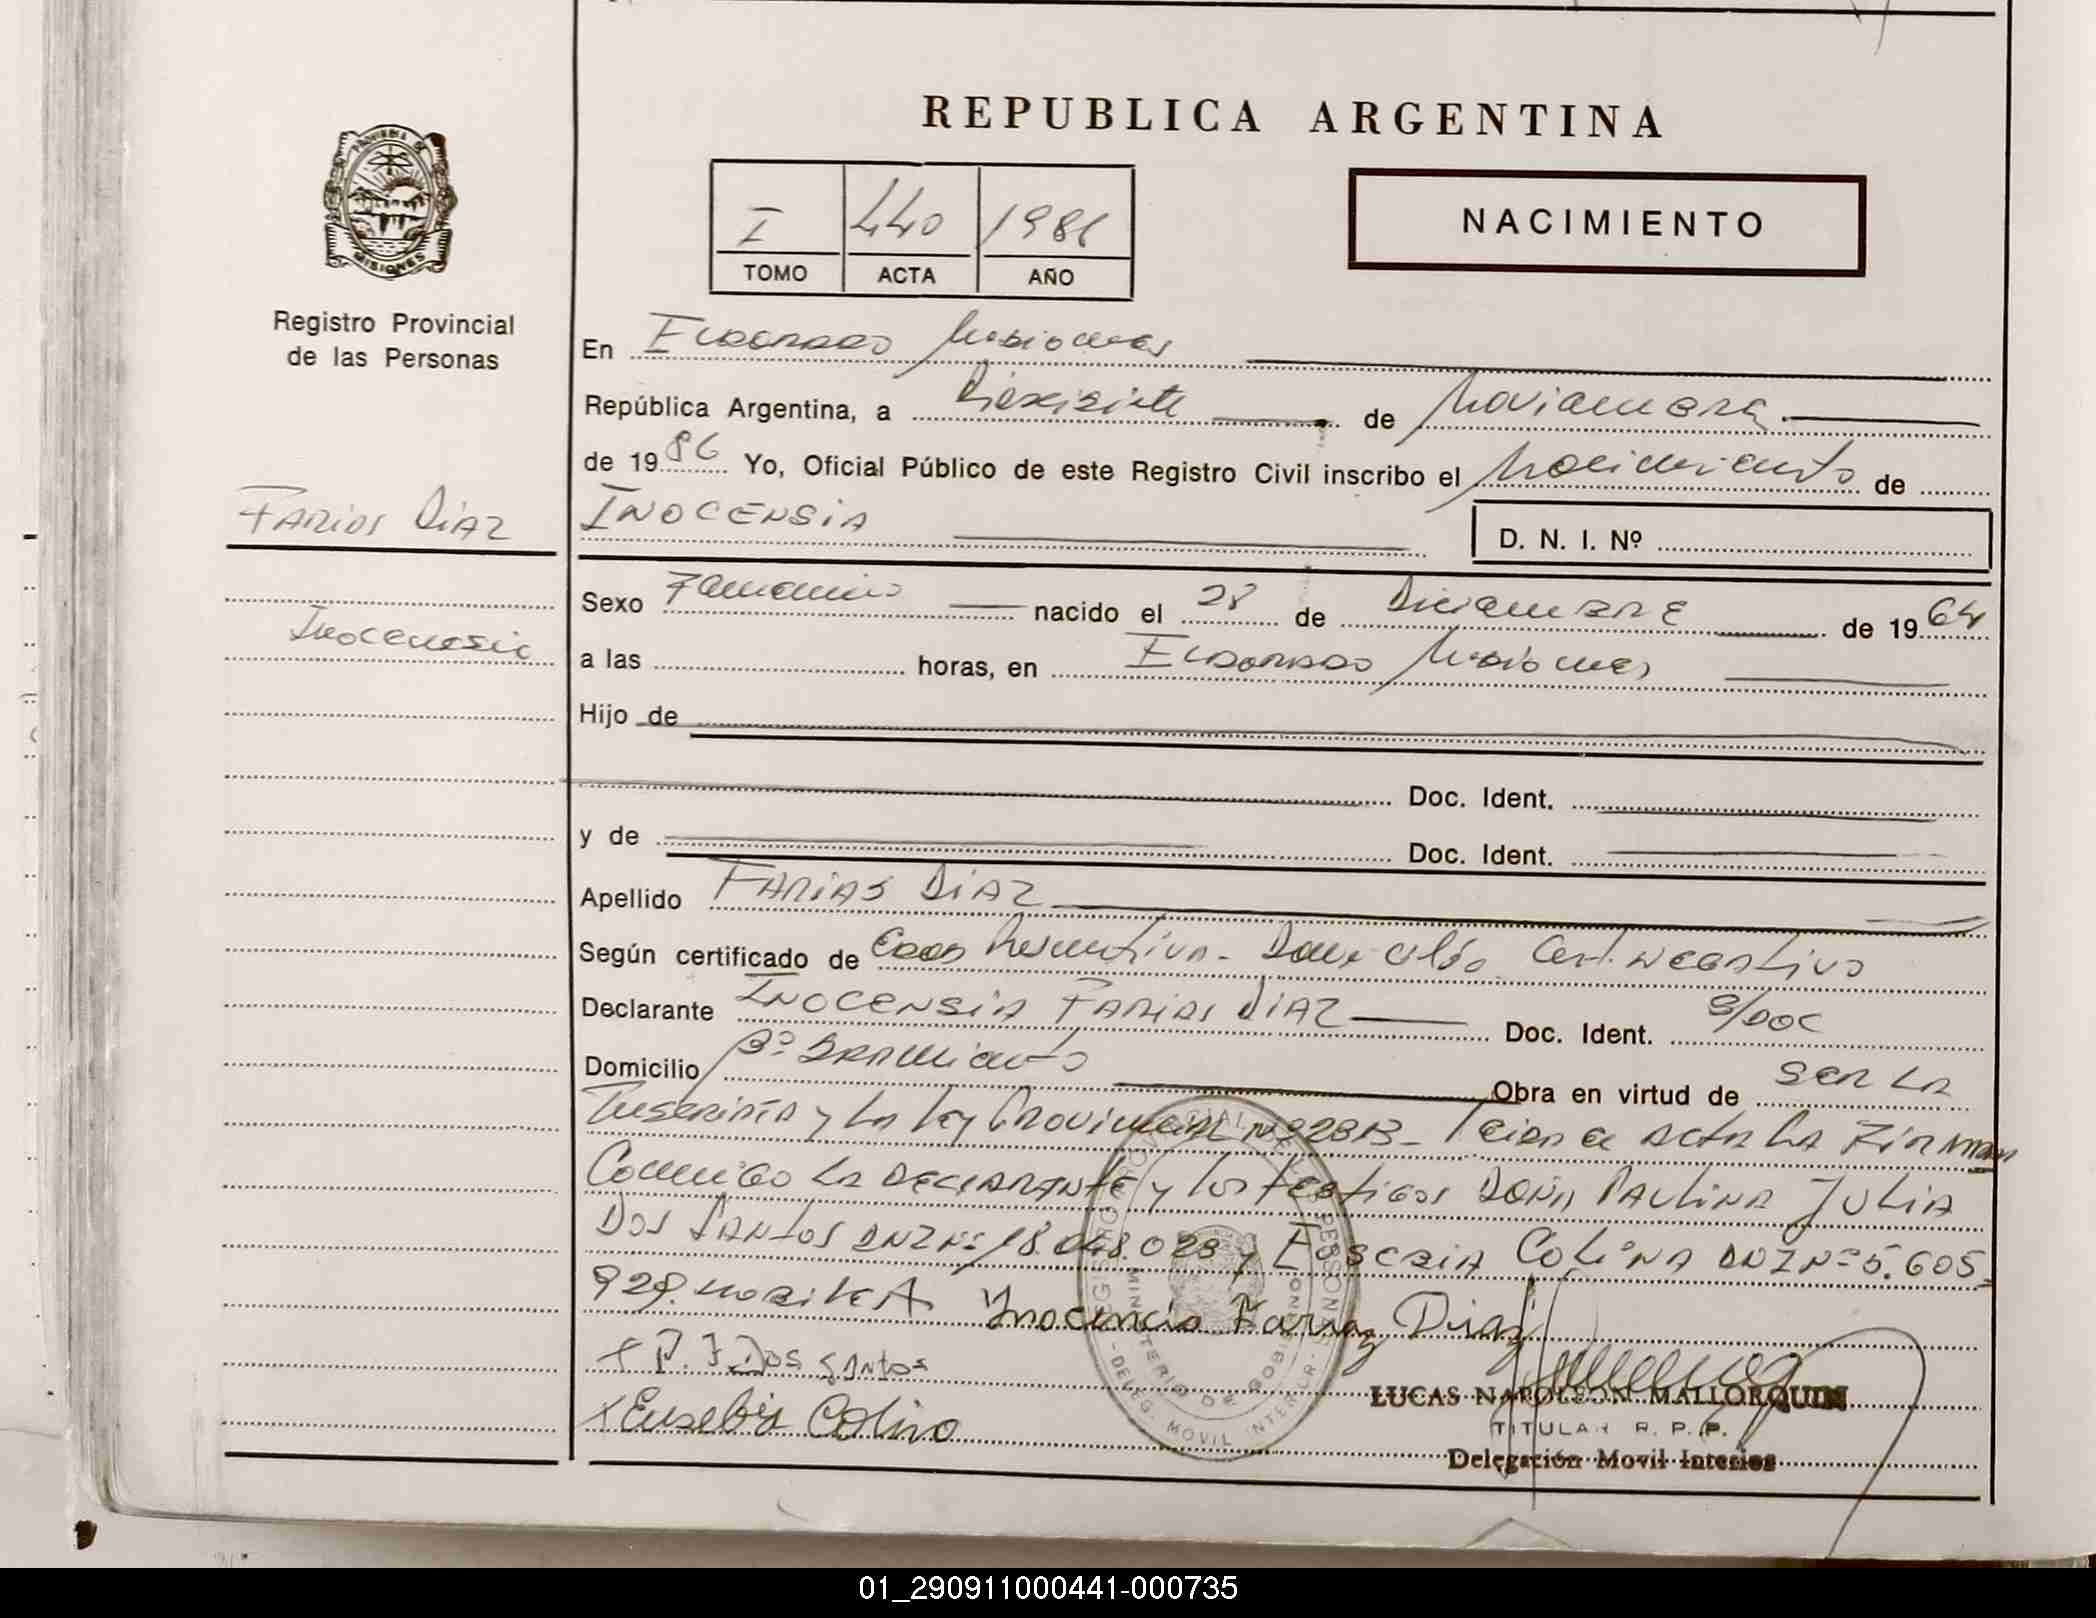 REPUBLICA ARGENTINA
PROVINCIA DE
MISIONES
Registro Provincial
de las Personas
I 440 1986
TOMO ACTA AÑO
NACIMIENTO
En Eldorado Misiones
República Argentina, a Diesisiete de Noviembre
de 1986 Yo, Oficial Público de este Registro Civil inscribo el Nacimiento de
Farias Diaz
INOCENSIA
D. N. I. Nº
Sexo Femenino nacido el 28 de Diciembre de 1964
Inocensia
a las horas, en Eldorado Misiones
Hijo de
Doc. Ident.
y de Doc. Ident.
Apellido FARIAS DIAZ
Según certificado de Domicilio Cert. Negativo
Declarante INOCENSIA FARIAS DIAZ Doc. Ident. S/DOC
Domicilio Bº Sarmiento Obra en virtud de ser la
Inscripta y la Ley Provincial Leida el acta la Firman
Conmigo la declarante y los testigos Doña Paulina Julia
Dos Santos DNI Nº 18.048.023 y Eusebia Colina DNI Nº 5.605.
929.
Inocencia Farias Diaz
x P. J Dos santos
x Eusebia Colino
REGISTRO PROVINCIAL DE LAS PERSONAS
MINISTERIO DE GOBIERNO
- DELEG. MOVIL INTERIOR -
LUCAS NAPOLEON MALLORQUIN
TITULAR R. P. P.
Delegación Movil Interior
01_290911000441-000735